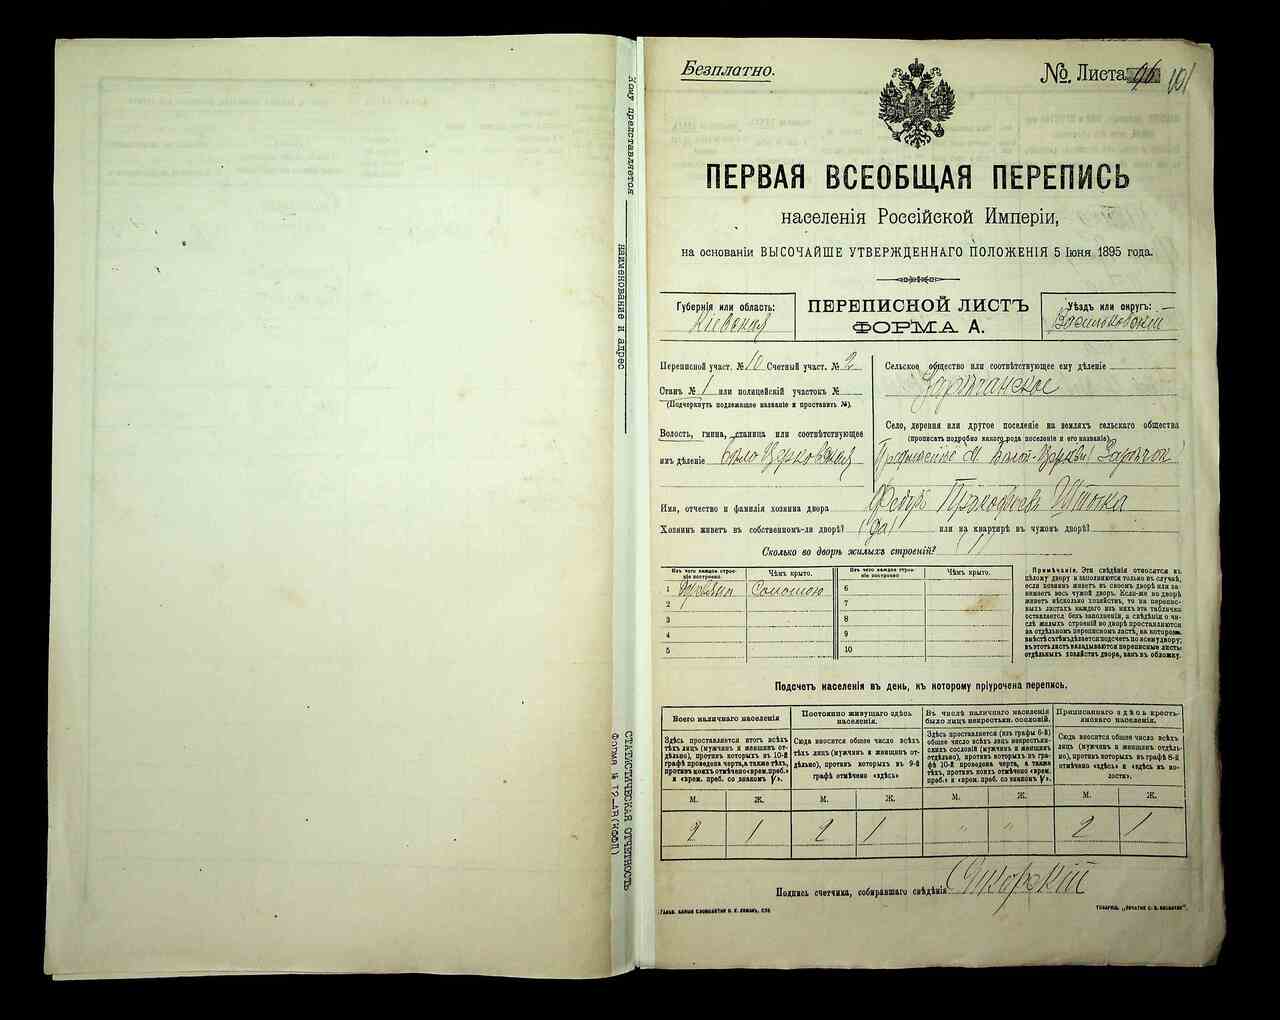 Кому представляется
наименование и адрес
СТАТИСТИЧЕСКАЯ ОТЧЕТНОСТЬ
Безплатно.
№ Листа 96 101
ПЕРВАЯ ВСЕОБЩАЯ ПЕРЕПИСЬ
населенія Россійской Имперіи,
на основаніи ВЫСОЧАЙШЕ УТВЕРЖДЕННАГО ПОЛОЖЕНІЯ 5 Іюня 1895 года.
Губернія или область:
Кіевская
ПЕРЕПИСНОЙ ЛИСТЪ
ФОРМА А.
Уѣздъ или округъ:
Васильковскій
Переписной участ. № 10 Счетный участ. № 2
Станъ № 1 или полицейскій участокъ №
(Подчеркнуть подлежащее названіе и проставить №).
Волость, гмина, станица или соотвѣтствующее
имъ дѣленіе Бѣлоцерковская
Сельское общество или соотвѣтствующее ему дѣленіе
Зарѣчанское
Село, деревня или другое поселеніе на земляхъ сельскаго общества
(прописать подробно какого рода поселеніе и его названіе)
Предмѣстье м. Бѣлой-Церкви Зарѣчье
Имя, отчество и фамилія хозяина двора Федоръ Прокофьевъ
Хозяинъ живетъ въ собственномъ-ли дворѣ? да или на квартирѣ въ чужомъ дворѣ?
Сколько во дворѣ жилыхъ строеній? 1
Изъ чего каждое строеніе построено
Чѣмъ крыто.
Изъ чего каждое строеніе построено
Чѣмъ крыто.
1 Соломою
2
3
4
5
6
7
8
9
10
Примѣчаніе. Эти свѣдѣнія относятся къ
цѣлому двору и заполняются только въ случаѣ,
если хозяинъ живетъ въ своемъ дворѣ или занимаетъ
весь чужой дворъ. Если-же во дворѣ
живетъ нѣсколько хозяйствъ, то на переписныхъ
листахъ каждаго изъ нихъ эта табличка
оставляется безъ заполненія, а свѣдѣнія о числѣ
жилыхъ строеній во дворѣ проставляются
на отдѣльномъ переписномъ листѣ, на которомъ
вмѣстѣ съ тѣмъ дѣлается подсчетъ по всему двору;
въ этотъ листъ вкладываются переписные листы
отдѣльныхъ хозяйствъ двора, какъ въ обложку.
Подсчетъ населенія въ день, къ которому пріурочена перепись.
Всего наличнаго населенія
Постоянно живущаго здѣсь
населенія.
Въ числѣ наличнаго населенія
было лицъ некрестьян. сословій.
Приписаннаго здѣсь крестьянскаго
населенія.
Здѣсь проставляется итогъ всѣхъ
тѣхъ лицъ (мужчинъ и женщинъ отдѣльно),
противъ которыхъ въ 10-й
графѣ проведена черта, а также тѣхъ,
противъ коихъ отмѣчено «врем. преб.»
и «врем. преб. со знакомъ V».
Сюда вносится общее число всѣхъ
тѣхъ лицъ (мужчинъ и женщинъ отдѣльно),
противъ которыхъ въ 9-й
графѣ отмѣчено «здѣсь»
Здѣсь проставляется (изъ графы 6-й)
общее число всѣхъ лицъ некрестьянскихъ
сословій (мужчинъ и женщинъ
отдѣльно), противъ которыхъ въ графѣ
10-й проведена черта, а также
тѣхъ, противъ коихъ отмѣчено «врем.
преб. со знакомъ V».
Сюда вносится общее число всѣхъ
лицъ (мужчинъ и женщинъ отдѣльно),
противъ которыхъ въ графѣ 8-й
отмѣчено «здѣсь» и «здѣсь въ волости».
М. Ж. М. Ж. М. Ж. М. Ж.
2 1 2 1 " " 2 1
Подпись счетчика, собиравшаго свѣдѣнія